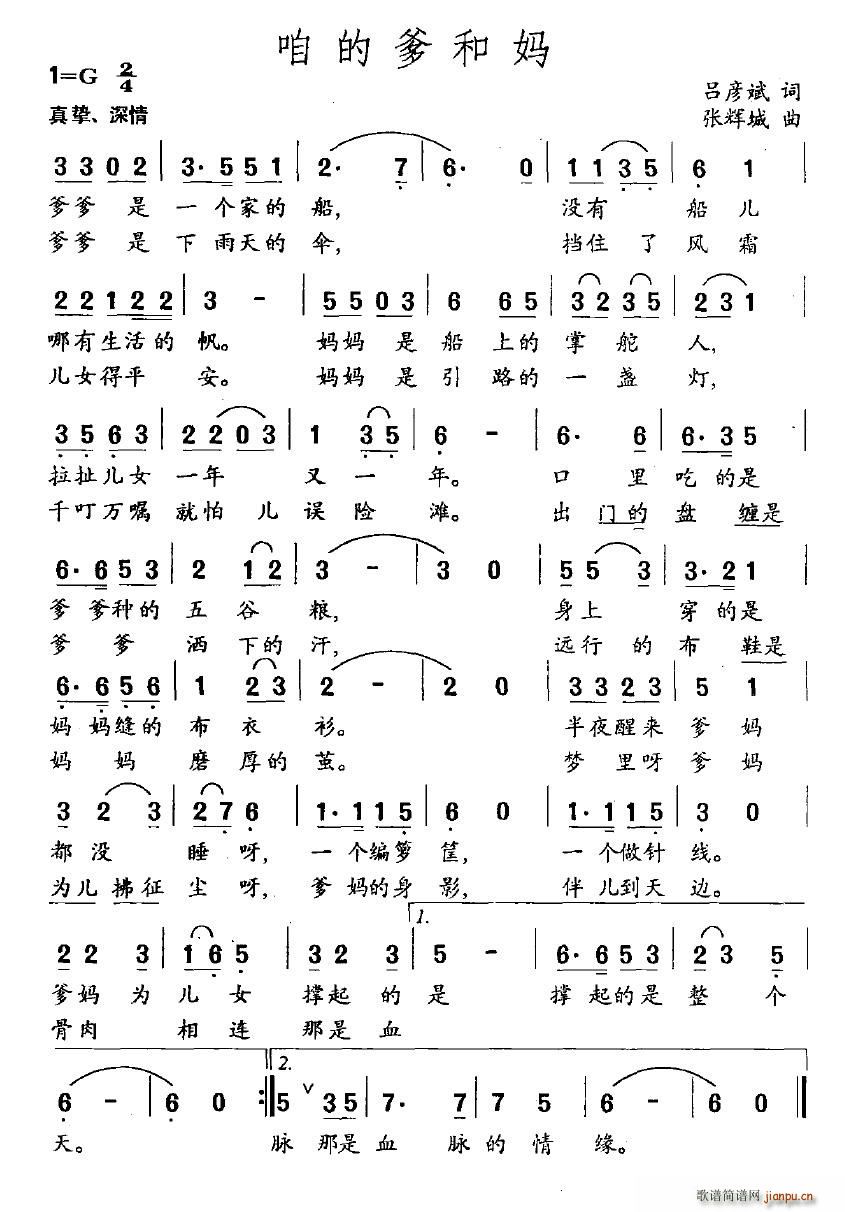 咱的爹和妈
1=G 2/4
吕彦斌 词
真挚、深情
张辉城 曲
3 3 0 2 | 3· 5 5 5 1 | 2· 7 | 6· 0 | 1 1 3 5 | 6 1
爹爹 是 一 个家的 船, 没有 船 儿
爹爹 是 下 雨天的 伞, 挡住 了 风 霜
2 2 1 2 2 | 3 - | 5 5 0 3 | 6 6 5 | 3 2 3 5 | 2 3 1
哪有生活的 帆。 妈妈 是 船 上的 掌 舵 人,
儿女得平 安。 妈妈 是 引 路的 一 盏 灯,
3 5 6 3 | 2 2 0 3 | 1 3 5 | 6 - | 6· 6 | 6· 3 5
拉扯儿女 一年 又 一 年。 口 里 吃 的是
千叮万嘱 就怕 儿 误 险 滩。 出 门的 盘 缠是
6· 6 5 3 | 2 1 2 | 3 - | 3 0 | 5 5 3 | 3· 2 1
爹 爹种的 五 谷 粮, 身上 穿 的是
爹 爹 洒 下的 汗, 远行 的 布 鞋是
6· 6 5 6 | 1 2 3 | 2 - | 2 0 | 3 3 2 3 | 5 1
妈 妈缝的 布 衣 衫。 半夜醒来 爹 妈
妈 妈 磨 厚的 茧。 梦 里呀 爹 妈
3 2 3 | 2 7 6 | 1· 1 1 5 | 6 0 | 1· 1 1 5 | 3 0
都 没 睡 呀, 一 个编箩 筐, 一 个做针 线。
为儿 拂征 尘 呀, 爹 妈的身 影, 伴 儿到天 边。
1.
2 2 3 | 1 6 5 | 3 2 3 | 5 - | 6· 6 5 3 | 2 3 5
爹妈 为 儿 女 撑起 的 是 撑 起的是 整 个
骨肉 相 连 那是 血
2.
6 - | 6 0 :‖ 5 ∨ 3 5 | 7· 7 | 7 5 | 6 - | 6 0 ‖
天。 脉 那是 血 脉 的 情 缘。
歌谱简谱网
jianpu.cn